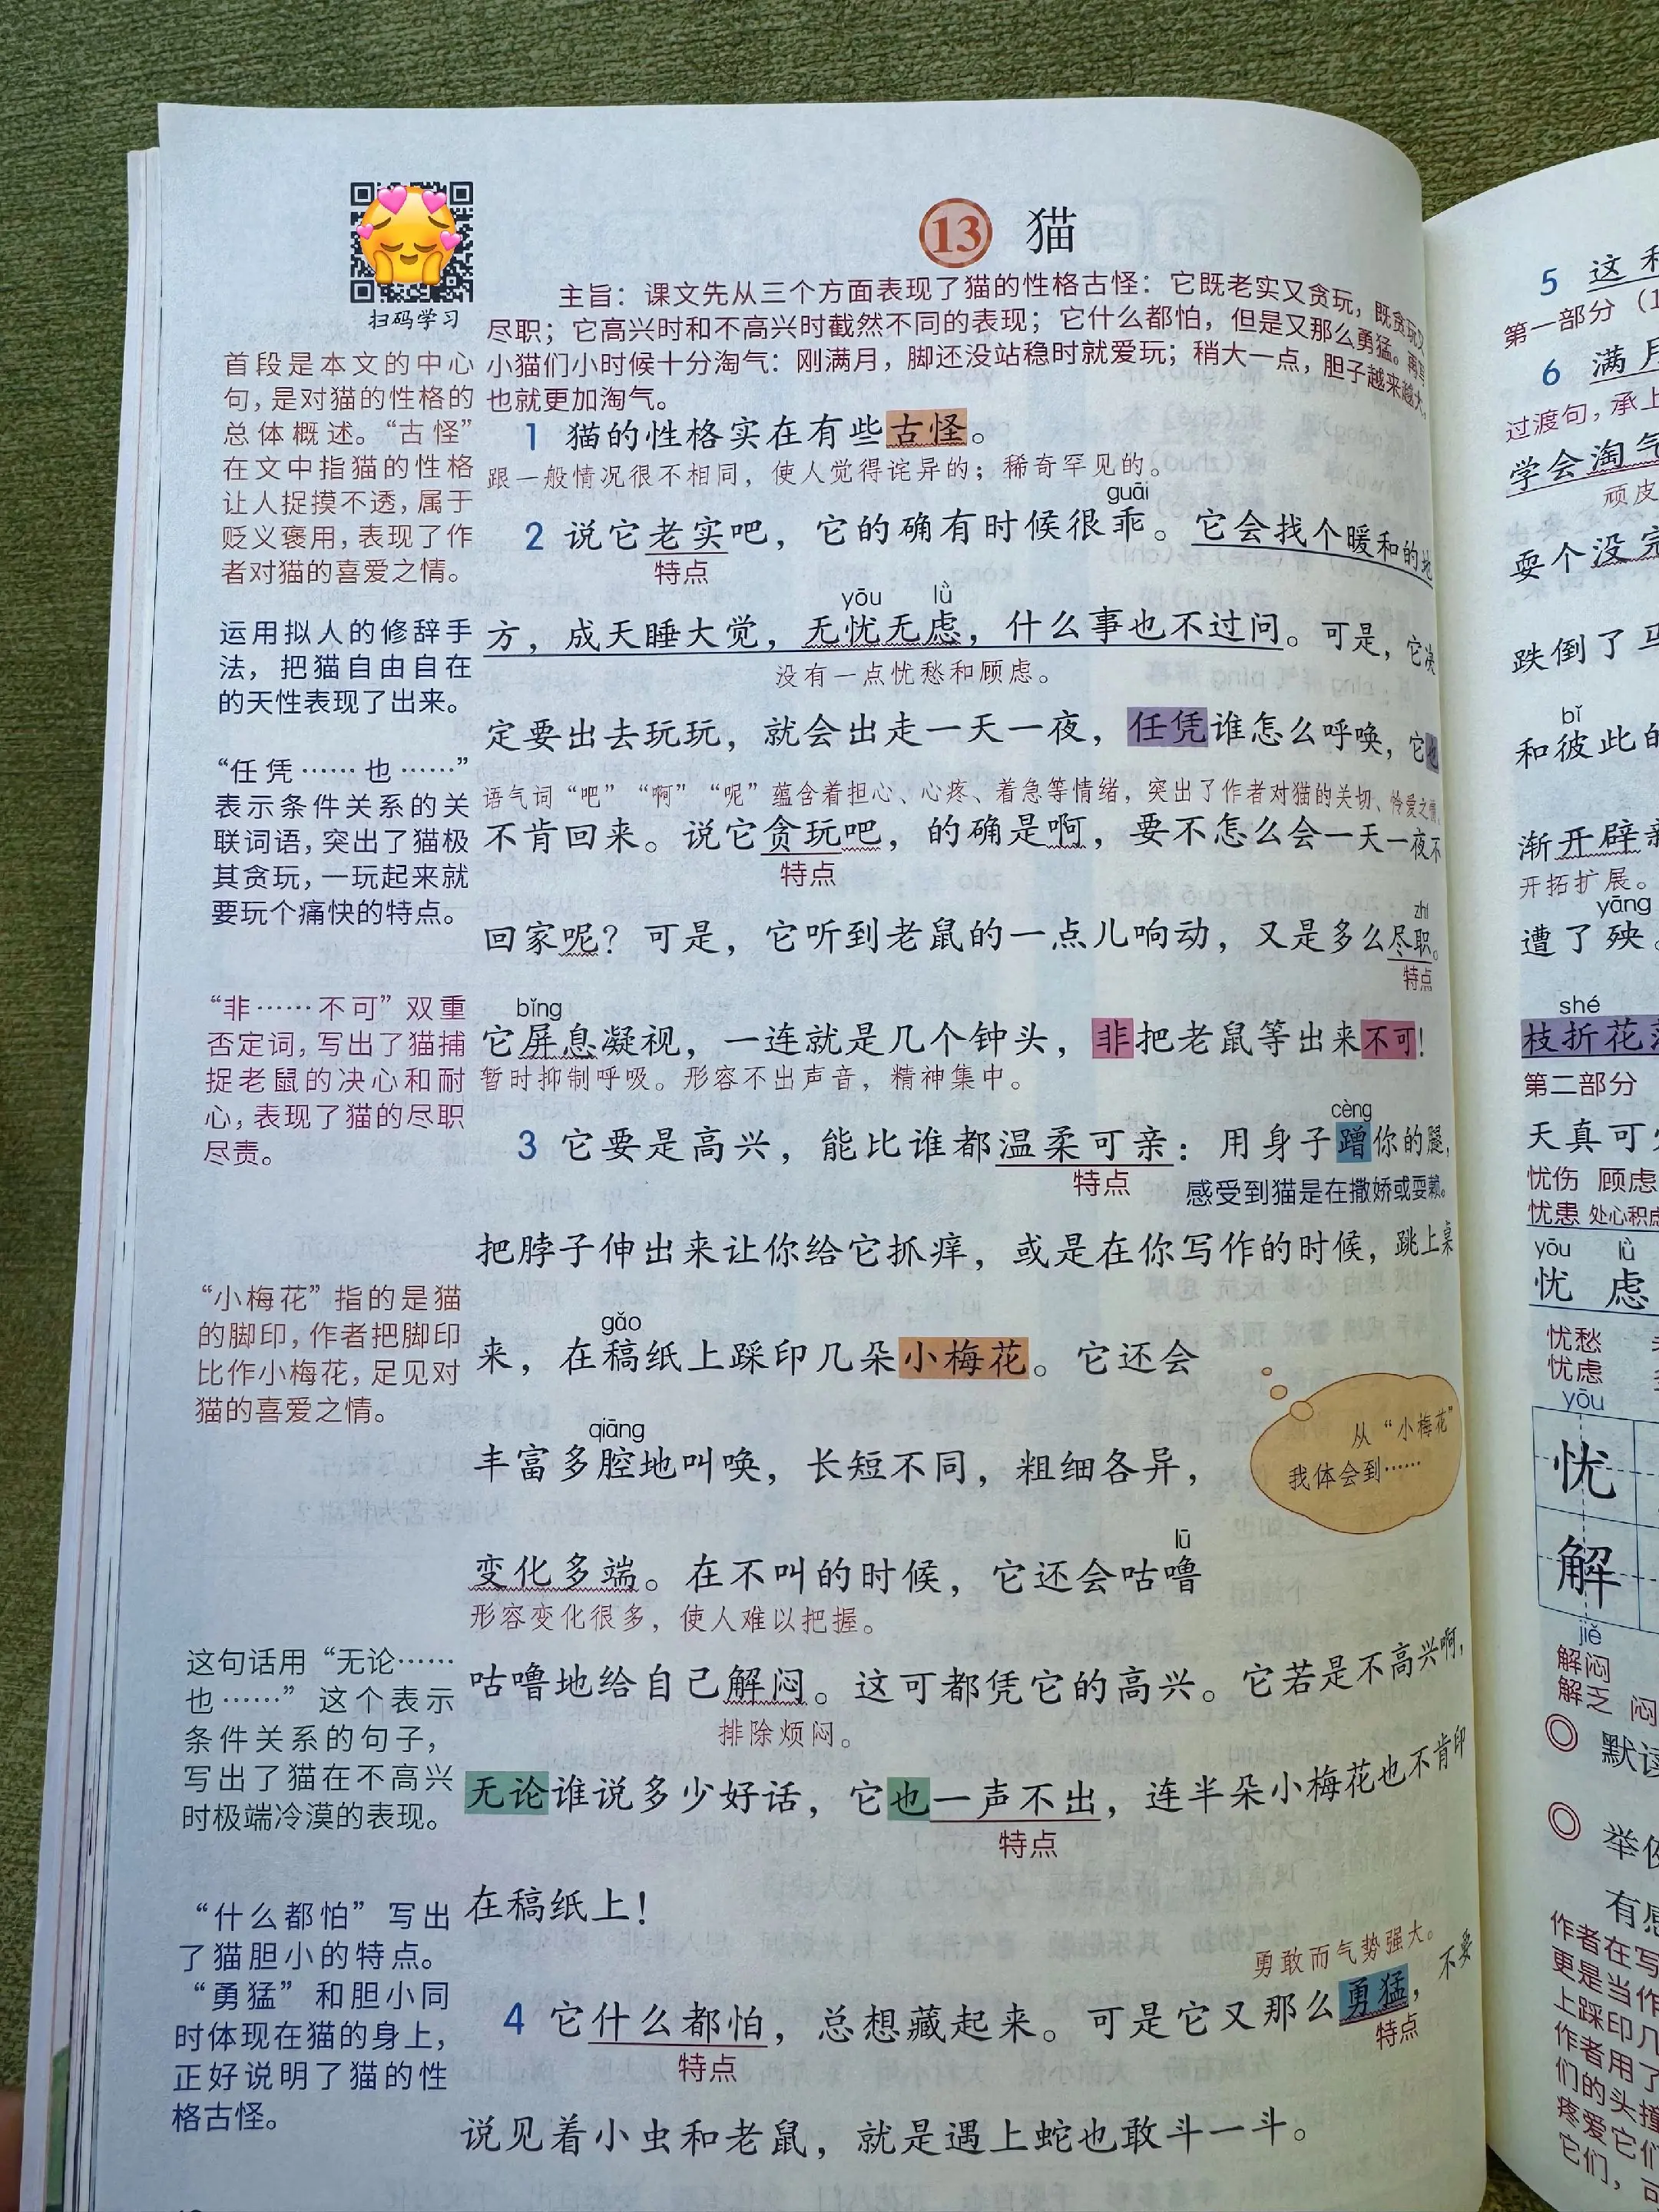 扫码学习
13 猫
主旨：课文先从三个方面表现了猫的性格古怪：它既老实又贪玩，既贪玩又
尽职；它高兴时和不高兴时截然不同的表现；它什么都怕，但是又那么勇猛。再写
小猫们小时候十分淘气：刚满月，脚还没站稳时就爱玩；稍大一点，胆子越来越大，
也就更加淘气。
首段是本文的中心
句，是对猫的性格的
总体概述。“古怪”
在文中指猫的性格
让人捉摸不透，属于
贬义褒用，表现了作
者对猫的喜爱之情。
1 猫的性格实在有些古怪。
跟一般情况很不相同，使人觉得诧异的；稀奇罕见的。
guāi
2 说它老实吧，它的确有时候很乖。它会找个暖和的地
特点
yōu lǜ
方，成天睡大觉，无忧无虑，什么事也不过问。可是，它决
没有一点忧愁和顾虑。
运用拟人的修辞手
法，把猫自由自在
的天性表现了出来。
定要出去玩玩，就会出走一天一夜，任凭谁怎么呼唤，它也
语气词“吧”“啊”“呢”蕴含着担心、心疼、着急等情绪，突出了作者对猫的关切、怜爱之情。
不肯回来。说它贪玩吧，的确是啊，要不怎么会一天一夜不
特点
“任凭……也……”
表示条件关系的关
联词语，突出了猫极
其贪玩，一玩起来就
要玩个痛快的特点。
zhí
回家呢？可是，它听到老鼠的一点儿响动，又是多么尽职。
特点
bǐng
它屏息凝视，一连就是几个钟头，非把老鼠等出来不可！
暂时抑制呼吸。形容不出声音，精神集中。
“非……不可”双重
否定词，写出了猫捕
捉老鼠的决心和耐
心，表现了猫的尽职
尽责。
cèng
3 它要是高兴，能比谁都温柔可亲：用身子蹭你的腿，
特点
感受到猫是在撒娇或耍赖。
把脖子伸出来让你给它抓痒，或是在你写作的时候，跳上桌
gǎo
来，在稿纸上踩印几朵小梅花。它还会
“小梅花”指的是猫
的脚印，作者把脚印
比作小梅花，足见对
猫的喜爱之情。
qiāng
丰富多腔地叫唤，长短不同，粗细各异，
从“小梅花”
我体会到……
lū
变化多端。在不叫的时候，它还会咕噜
形容变化很多，使人难以把握。
咕噜地给自己解闷。这可都凭它的高兴。它若是不高兴啊，
排除烦闷。
无论谁说多少好话，它也一声不出，连半朵小梅花也不肯印
特点
在稿纸上！
这句话用“无论……
也……”这个表示
条件关系的句子，
写出了猫在不高兴
时极端冷漠的表现。
勇敢而气势强大。
4 它什么都怕，总想藏起来。可是它又那么勇猛，不要
特点
特点
说见着小虫和老鼠，就是遇上蛇也敢斗一斗。
“什么都怕”写出
了猫胆小的特点。
“勇猛”和胆小同
时体现在猫的身上，
正好说明了猫的性
格古怪。
5 这
第一部分（1
6 满月
过渡句，承上
学会淘气
顽皮
耍个没完
跌倒了马
bǐ
和彼此的
渐开辟新
开拓扩展。
yāng
遭了殃。
shé
枝折花落
第二部分
天真可
忧伤 顾虑
忧患 处心积虑
yōu lǜ
忧 虑
忧愁
忧虑
yōu
忧
解
jiě
解闷
解乏 闷
默读
举例
有感
作者在写
更是当作
上踩印几
作者用了
们的头撞
疼爱它们
它们，可